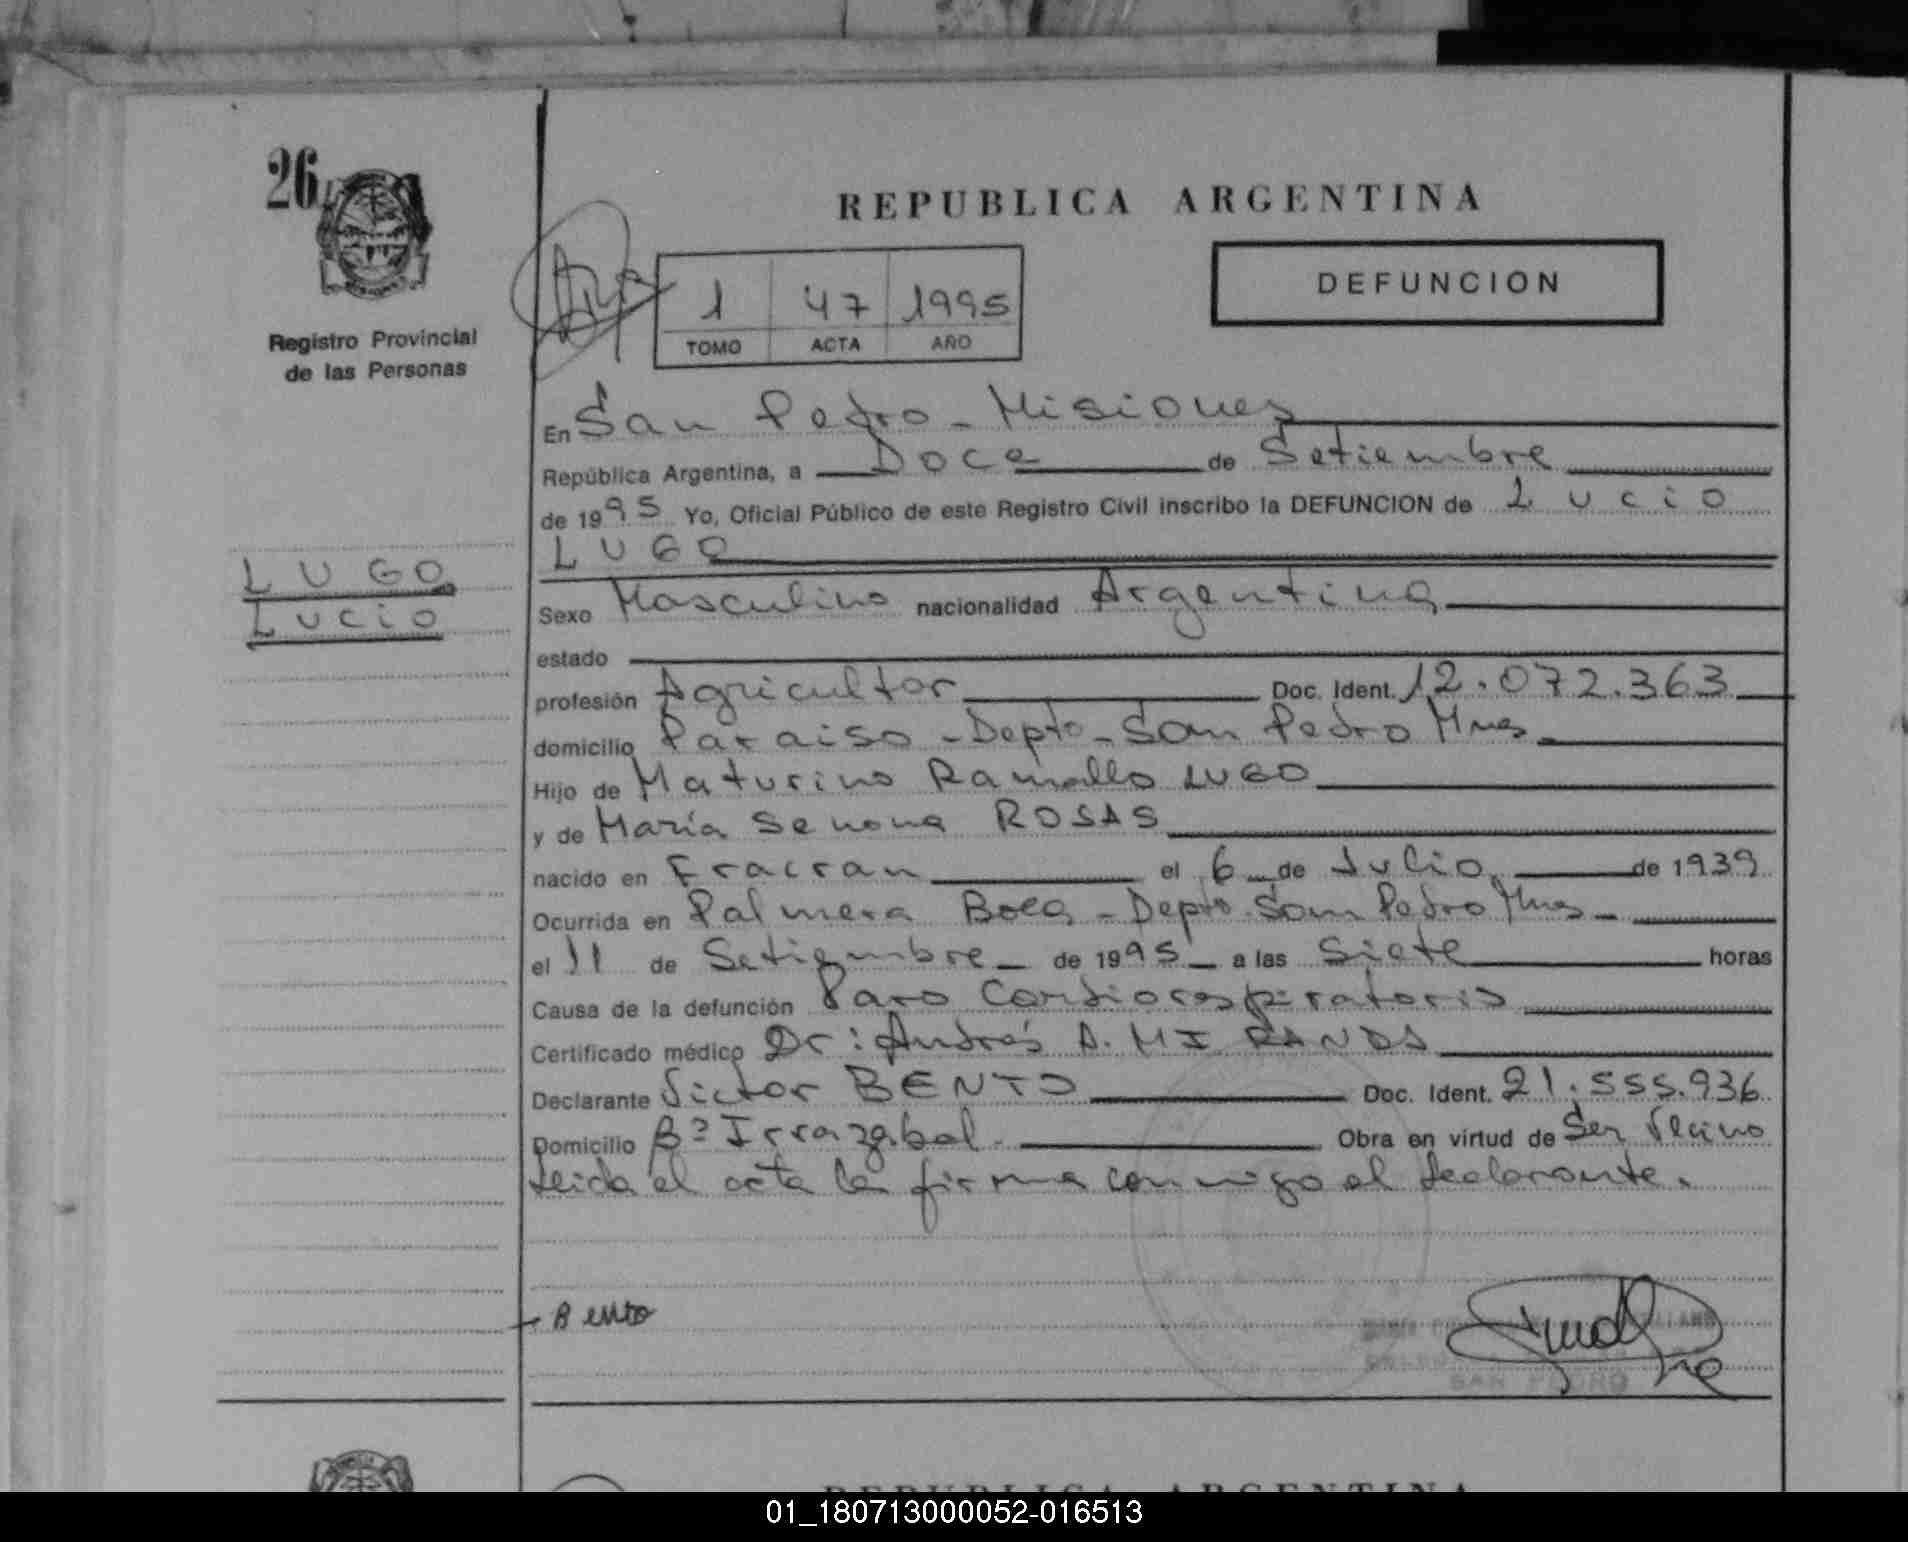 26
REPUBLICA ARGENTINA
DEFUNCION
1 47 1995
TOMO ACTA AÑO
Registro Provincial
de las Personas
En San Pedro - Misiones
República Argentina, a Doce de Setiembre
de 1995 Yo, Oficial Público de este Registro Civil inscribo la DEFUNCION de Lucio
LUGO
LUGO
Lucio
Sexo Masculino nacionalidad Argentina
estado
profesión Agricultor Doc. Ident. 12.072.363
domicilio Paraiso - Depto - San Pedro Mnes
Hijo de Maturino Ramallo LUGO
y de María Senona ROSAS
nacido en Fracran el 6 de Julio de 1939
Ocurrida en Palmera Boca - Depto San Pedro Mnes -
el 11 de Setiembre de 1995 a las Siete horas
Causa de la defunción Paro Cardiorespiratorio
Certificado médico Dr: Andrés A. MIRANDA
Declarante Victor BENTO Doc. Ident. 21.555.936
Domicilio Bº Irrazabal Obra en virtud de Ser Vecino
Leida el acta la firma conmigo el declarante.
Bento
SAN PEDRO
REPUBLICA ARGENTINA
01_180713000052-016513